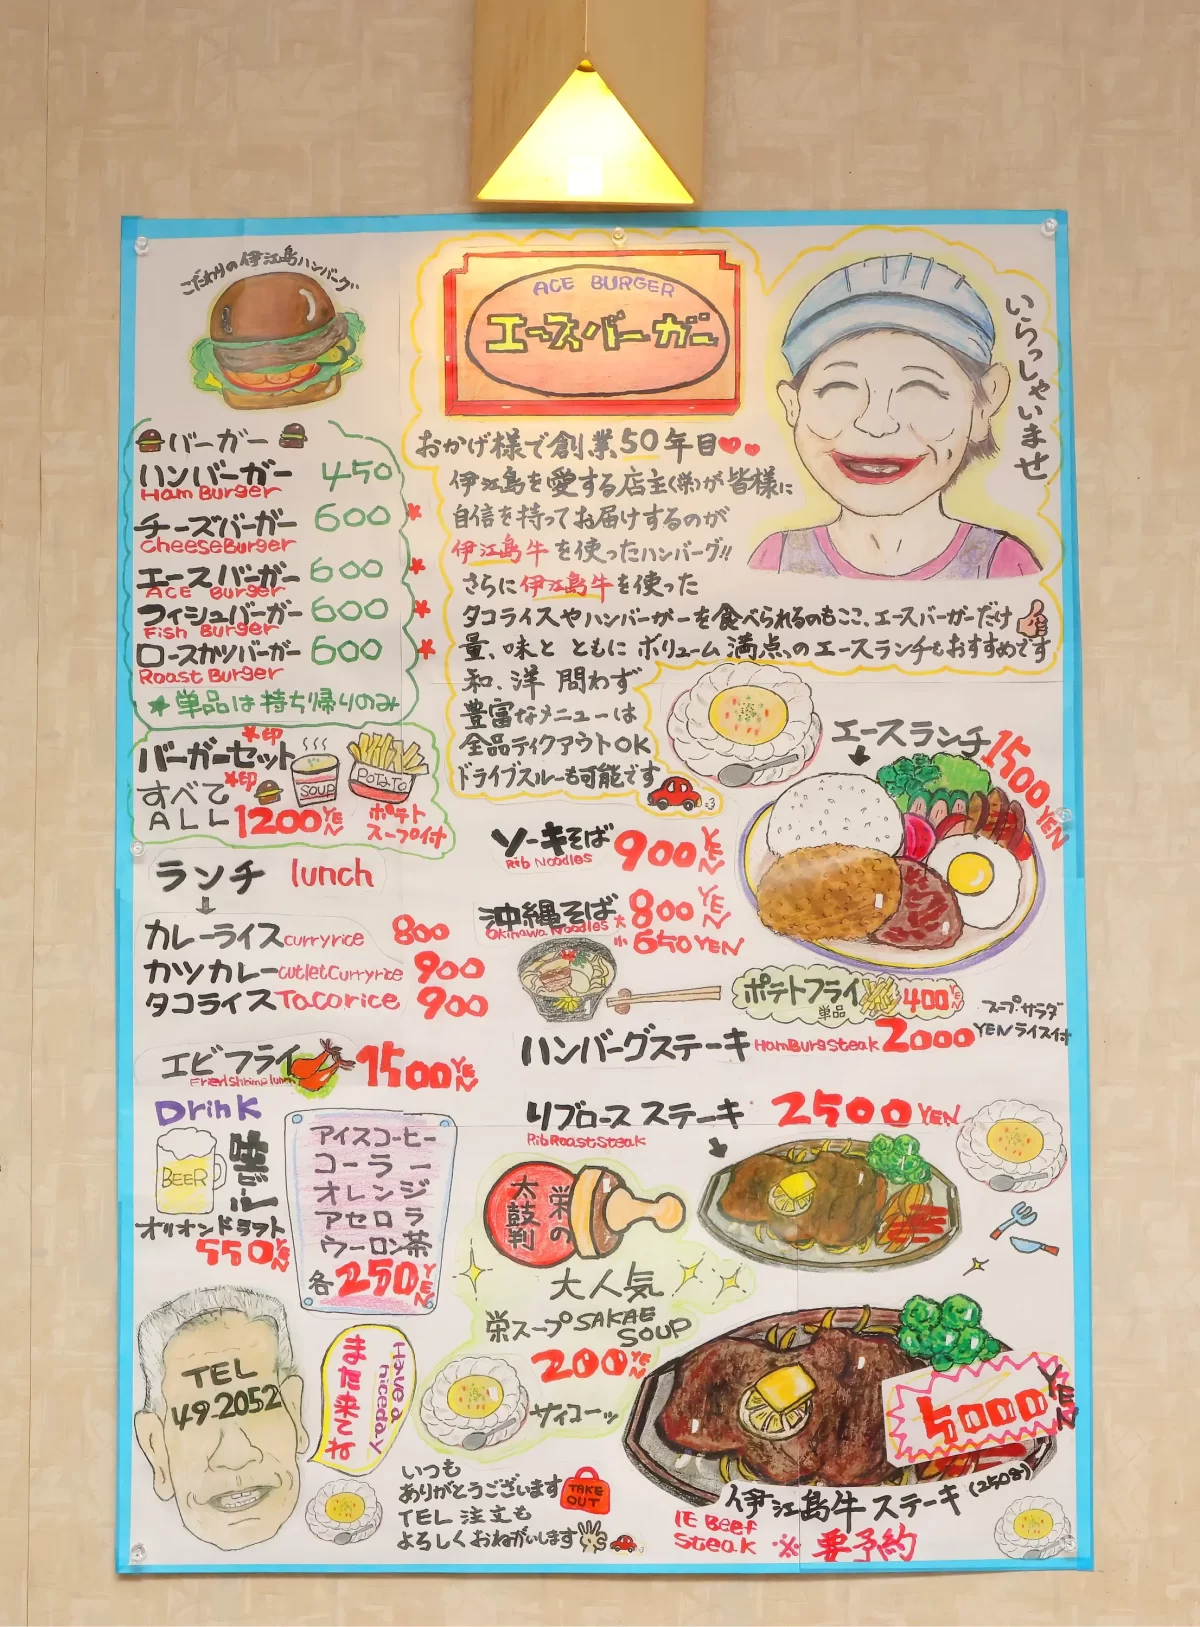 こだわりの伊江島ハンバーグ
ACE BURGER
エースバーガー
いらっしゃいませ
バーガー
ハンバーガー 450
Ham Burger
チーズバーガー 600 *
Cheese Burger
エースバーガー 600 *
ACE Burger
フィッシュバーガー 600 *
Fish Burger
ロースカツバーガー 600 *
Roast Burger
*単品は持ち帰りのみ
バーガーセット
*印
すべて *印
ALL 1200 YEN
SOUP
POTATO
ポテト
スープ付
おかげ様で創業50年目
伊江島を愛する店主(栄)が皆様に
自信を持ってお届けするのが
伊江島牛を使ったハンバーグ!!
さらに伊江島牛を使った
タコライスやハンバーガーを食べられるのもここ、エースバーガーだけ
量、味と ともに ボリューム満点、の エースランチもおすすめです
和、洋 問わず
豊富なメニューは
全品テイクアウトOK
ドライブスルーも可能です
エースランチ 1500 YEN
ランチ lunch
カレーライス curryrice 800
カツカレー cutletCurryrice 900
タコライス Tacorice 900
エビフライ 1500 YEN
Fried shrimp lunch
ソーキそば 900 YEN
Rib Noodles
沖縄そば 大 800 YEN
Okinawa Noodles 小 650 YEN
ポテトフライ 400 YEN
単品
スープ・サラダ
ハンバーグステーキ HamBurgSteak 2000 YEN ライス付
リブロース ステーキ 2500 YEN
Rib Roast Steak
Drink
BEER
生ビール
オリオンドラフト
550 YEN
アイスコーヒー
コーラー
オレンジ
アセロラ
ウーロン茶
各250 YEN
栄の
太鼓判
大人気
栄スープ SAKAE
SOUP
200 YEN
サイコーッ
TEL
49-2052
Have a
niceday
また来てね
いつも
ありがとうございます
TEL 注文も
よろしくおねがいします
TAKE
OUT
5000 YEN
伊江島牛ステーキ (250g)
IE Beef
Steak ※ 要予約